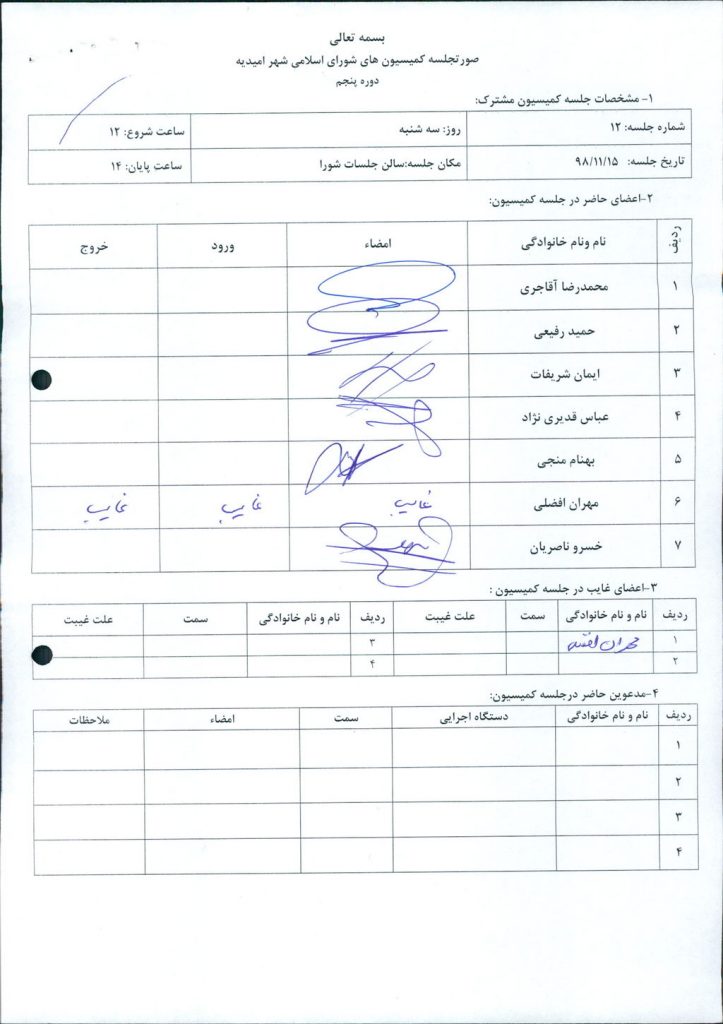 بسمه تعالی
صورتجلسه کمیسیون های شورای اسلامی شهر امیدیه
دوره پنجم
۱- مشخصات جلسه کمیسیون مشترک:
شماره جلسه: ۱۲ روز: سه شنبه ساعت شروع: ۱۲
تاریخ جلسه: ۹۸/۱۱/۱۵ مکان جلسه:سالن جلسات شورا ساعت پایان: ۱۴
۲-اعضای حاضر در جلسه کمیسیون:
ردیف نام ونام خانوادگی امضاء ورود خروج
۱ محمدرضا آقاجری
۲ حمید رفیعی
۳ ایمان شریفات
۴ عباس قدیری نژاد
۵ بهنام منجی
۶ مهران افضلی غایب غایب غایب
۷ خسرو ناصریان
۳-اعضای غایب در جلسه کمیسیون :
ردیف نام و نام خانوادگی سمت علت غیبت ردیف نام و نام خانوادگی سمت علت غیبت
۱ مهران ۳
۲ ۴
۴-مدعوین حاضر درجلسه کمیسیون:
ردیف نام و نام خانوادگی دستگاه اجرایی سمت امضاء ملاحظات
۱
۲
۳
۴